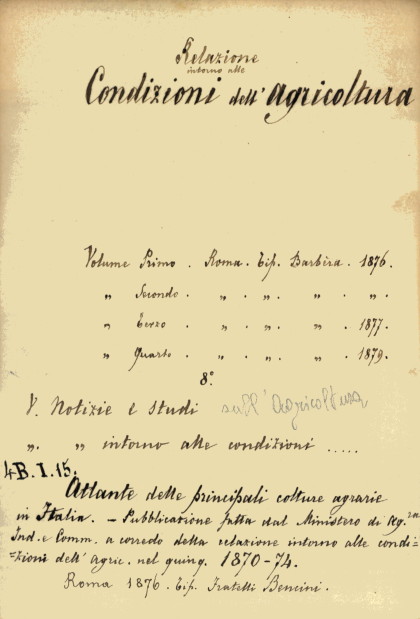 Relazione
intorno alle
Condizioni dell' agricoltura
Volume Primo . Roma . Tip. Barbèra . 1876.
„ Secondo . „ . „ . „ . „ .
„ Terzo . „ . „ . „ . 1877.
„ Quarto . „ . „ . „ . 1879.
8º
V. Notizie e studi sull' Agricoltura
„. „ intorno alle condizioni .....
4B.I.15.
Atlante delle principali colture agrarie
in Italia. – Pubblicazione fatta dal Ministero di Ag.ra
Ind. e Comm. a corredo della relazione intorno alle condi-
=zioni dell' Agric. nel quinq. 1870-74.
Roma 1876. Tip. Fratelli Bencini.